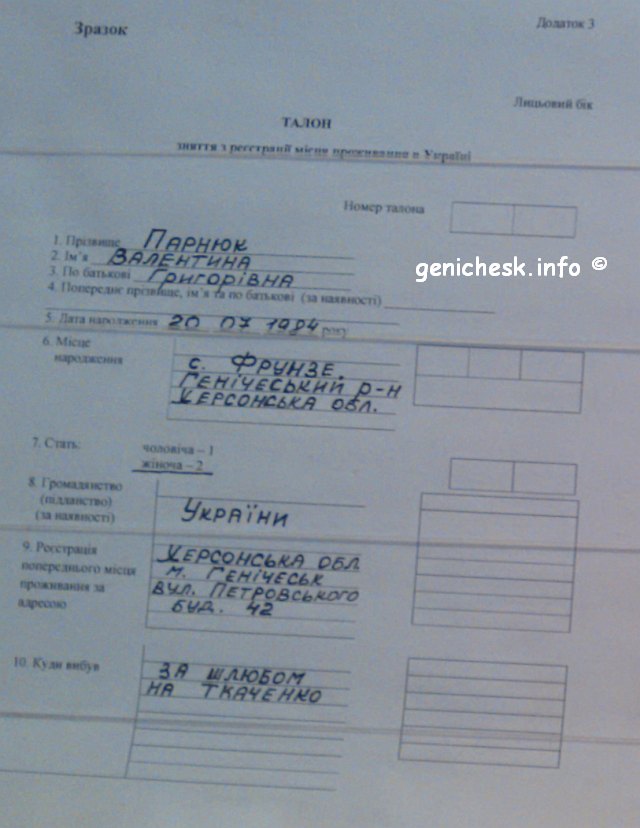 Зразок
Додаток 3
Лицьовий бік
ТАЛОН
зняття з реєстрації місця проживання в Україні
Номер талона
1. Прізвище ПАРНЮК
2. Ім'я ВАЛЕНТИНА
3. По батькові ГРИГОРІВНА
genichesk.info ©
4. Попереднє прізвище, ім'я та по батькові (за наявності)
5. Дата народження 20 07 1984 року
6. Місце
народження
с. ФРУНЗЕ.
ГЕНІЧЕСЬКИЙ Р-Н
ХЕРСОНСЬКА ОБЛ.
7. Стать:
чоловіча – 1
жіноча – 2
8. Громадянство
(підданство)
(за наявності)
УКРАЇНИ
9. Реєстрація
попереднього місця
проживання за
адресою
ХЕРСОНСЬКА ОБЛ
М. ГЕНІЧЕСЬК
ВУЛ. ПЕТРОВСЬКОГО
БУД. 42
10. Куди вибув
ЗА ШЛЮБОМ
НА ТКАЧЕНКО